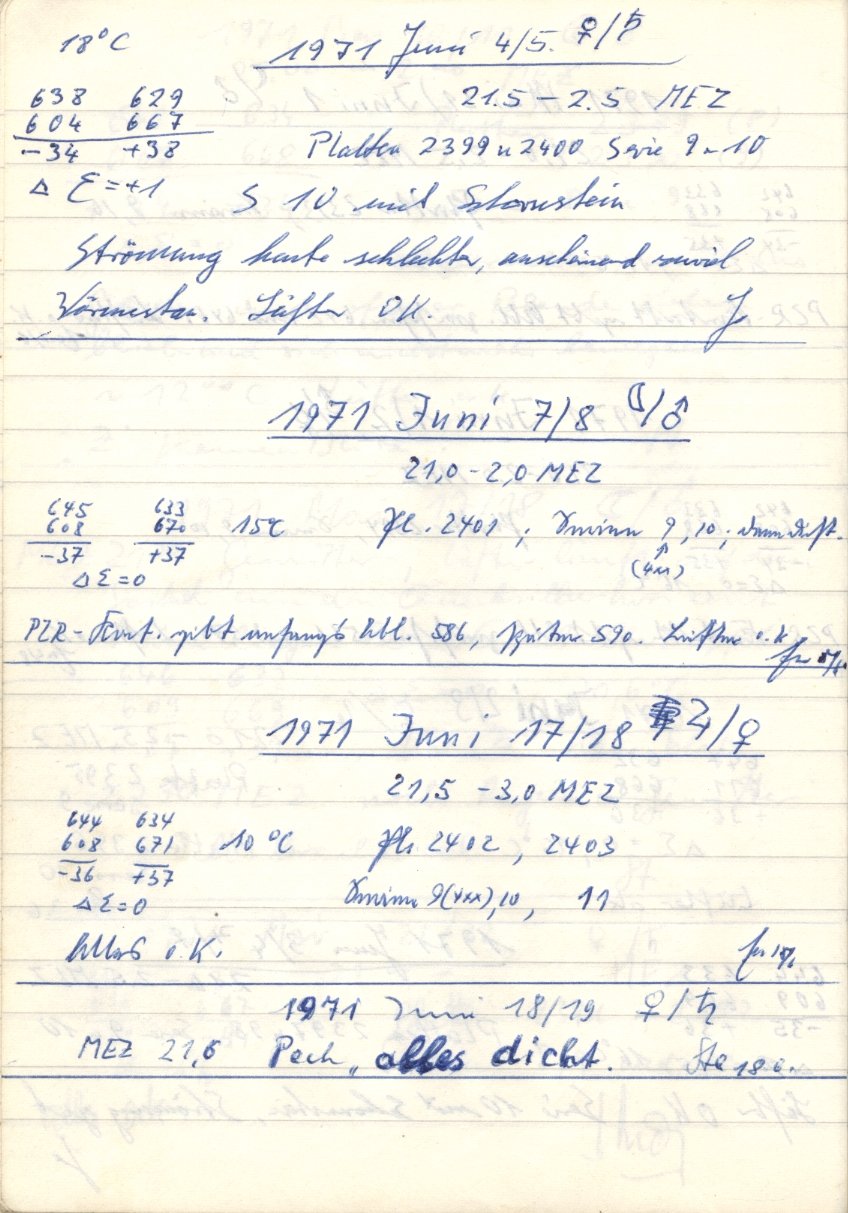 18°C 1971 Juni 4/5. ♀/♄
638 629 21.5 – 2.5 MEZ
604 667
-34 +38 Platten 2399 u 2400 Serie 9 u 10
Δ Σ = +1 S 10 mit Schornstein
Strömung heute schlechter, anscheinend zuviel
Wärmestau. Lüfter OK.
1971 Juni 7/8 ☾/♂
21,0 – 2,0 MEZ
645 633
608 670 15°C Pl. 2401 ; 9, 10 ; dann
-37 +37
ΔΣ = 0
PZR - gibt anfangs 586, später 590. Lüfter o.k
1971 Juni 17/18 ♃/♀
21,5 – 3,0 MEZ
644 634
608 671 10 °C Pl. 2402, 2403
-36 +37
ΔΣ = 0 9 10, 11
Alles o.K.
1971 Juni 18/19 ♀/♄
MEZ 21,6 Pech, alles dicht.